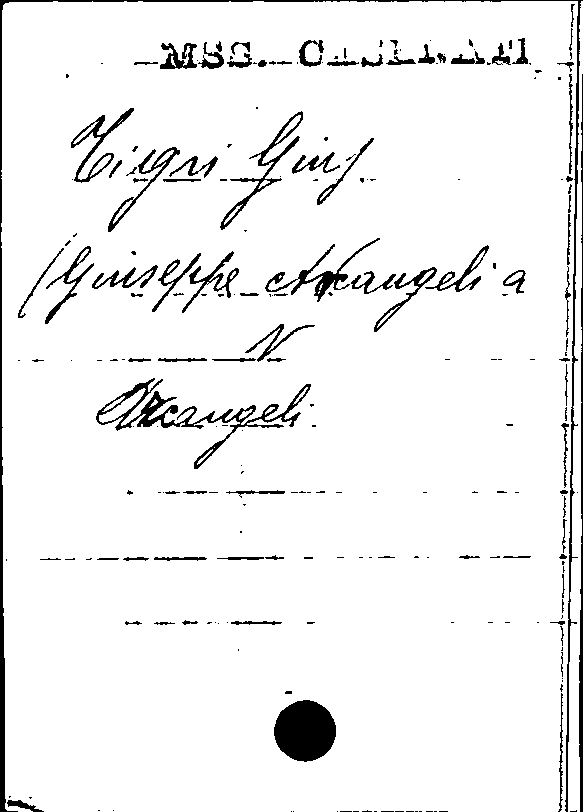 MSS.
Tigri Giu
(Giuseppe Arcangeli a
V
Arcangeli